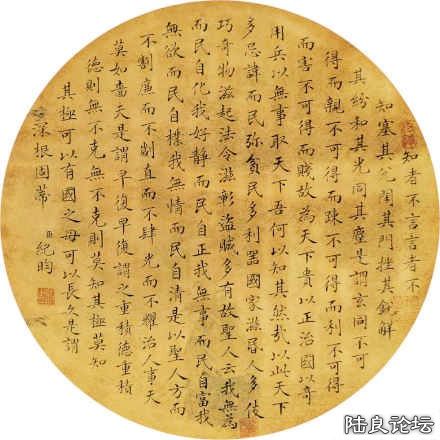 知者不言言者不
知塞其兌閉其門挫其銳解
其紛和其光同其塵是謂玄同不可
得而親不可得而踈不可得而利不可得
而害不可得而賤故為天下貴以正治國以奇
用兵以無事取天下吾何以知其然哉以此天下
多忌諱而民弥貧民多利器國家滋昏人多伎
巧奇物滋起法令滋彰盜賊多有故聖人云我無為
而民自化我好靜而民自正我無事而民自富我
無欲而民自樸我無情而民自清是以聖人方而
不割廉而不劌直而不肆光而不耀治人事天
莫如嗇夫是謂早復早復謂之重積德重積
德則無不克無不克則莫知其極莫知
其極可以有國之母可以長久是謂
深根固蒂 臣紀昀
陆良论坛